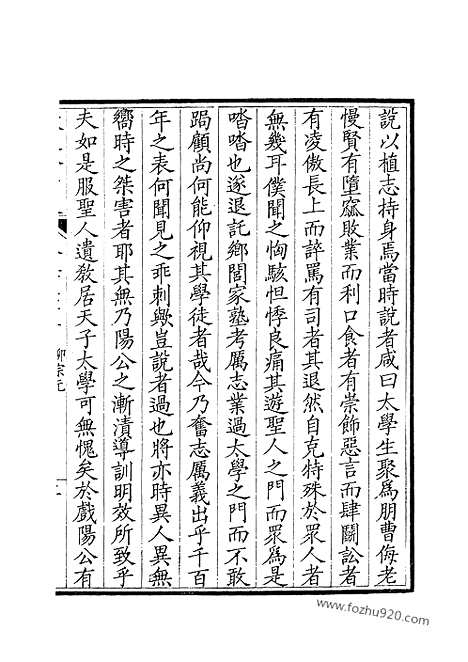 說以植志持身焉當時說者咸曰太學生聚為朋曹侮老
慢賢有墮窳敗業而利口食者有崇飾惡言而肆鬭訟者
有凌傲長上而誶罵有司者其退然自克特殊於眾人者
無幾耳僕聞之恟駭怛悸良痛其遊聖人之門而眾為是
喈喈也遂退託鄉閭家塾考厲志業過太學之門而不敢
跼顧尚何能仰視其學徒者哉今乃奮志厲義出乎千百
年之表何聞見之乖剌歟豈說者過也將亦時異人異無
嚮時之桀害者耶其無乃陽公之漸漬導訓明效所致乎
夫如是服聖人遺教居天子太學可無愧矣於戲陽公有
柳宗元
www.fozhu920.com